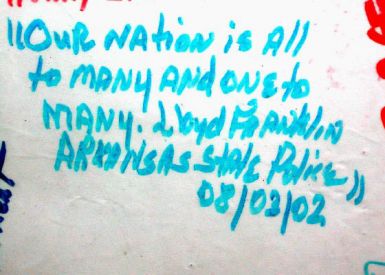 "Our Nation is All
to MANY AND ONE to
MANY. Lloyd FRANKlIN
ARKANSAS State Police"
08/03/02